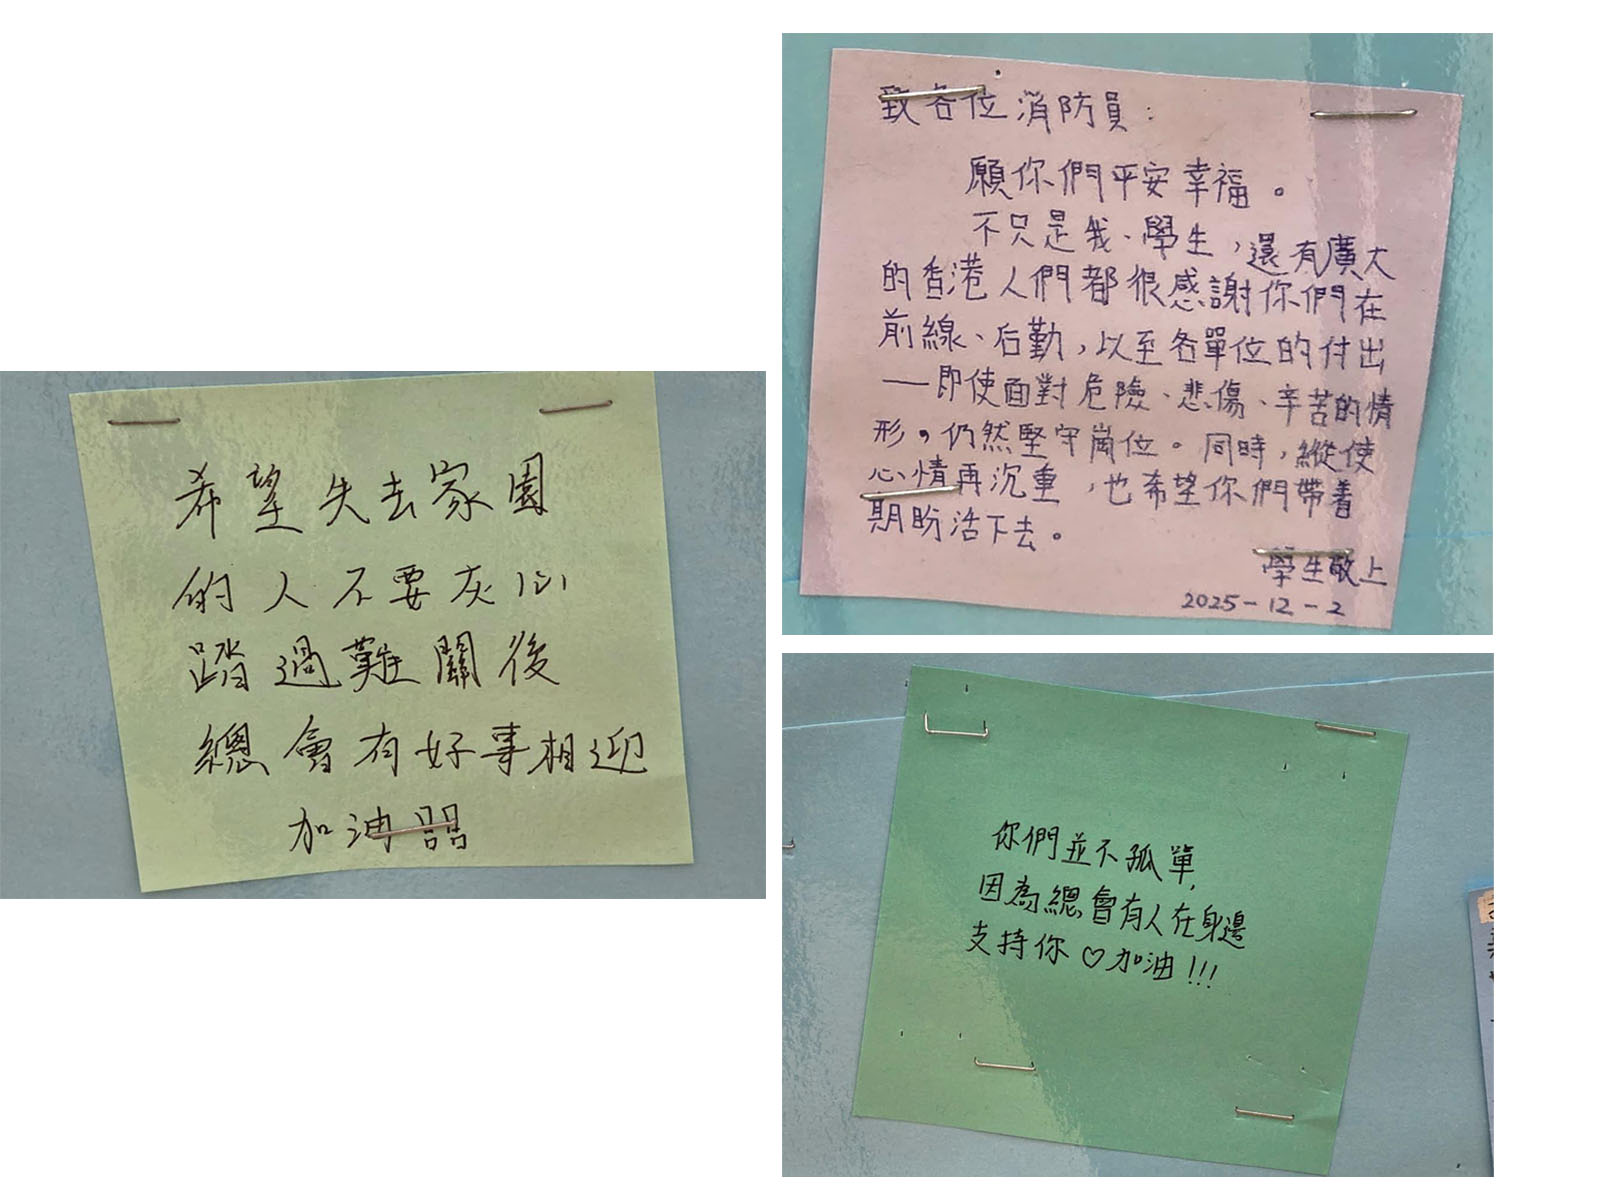 希望失去家園
的人不要灰心
踏過難關後
總會有好事相迎
加油㗎
致各位消防員：
願你們平安幸福。
不只是我、學生，還有廣大
的香港人們都很感謝你們在
前線、后勤，以至各單位的付出
——即使面對危險、悲傷、辛苦的情
形，仍然堅守崗位。同時，縱使
心情再沉重，也希望你們帶着
期盼活下去。
學生敬上
2025-12-2
你們並不孤單，
因為總會有人在身邊
支持你♡加油！！！